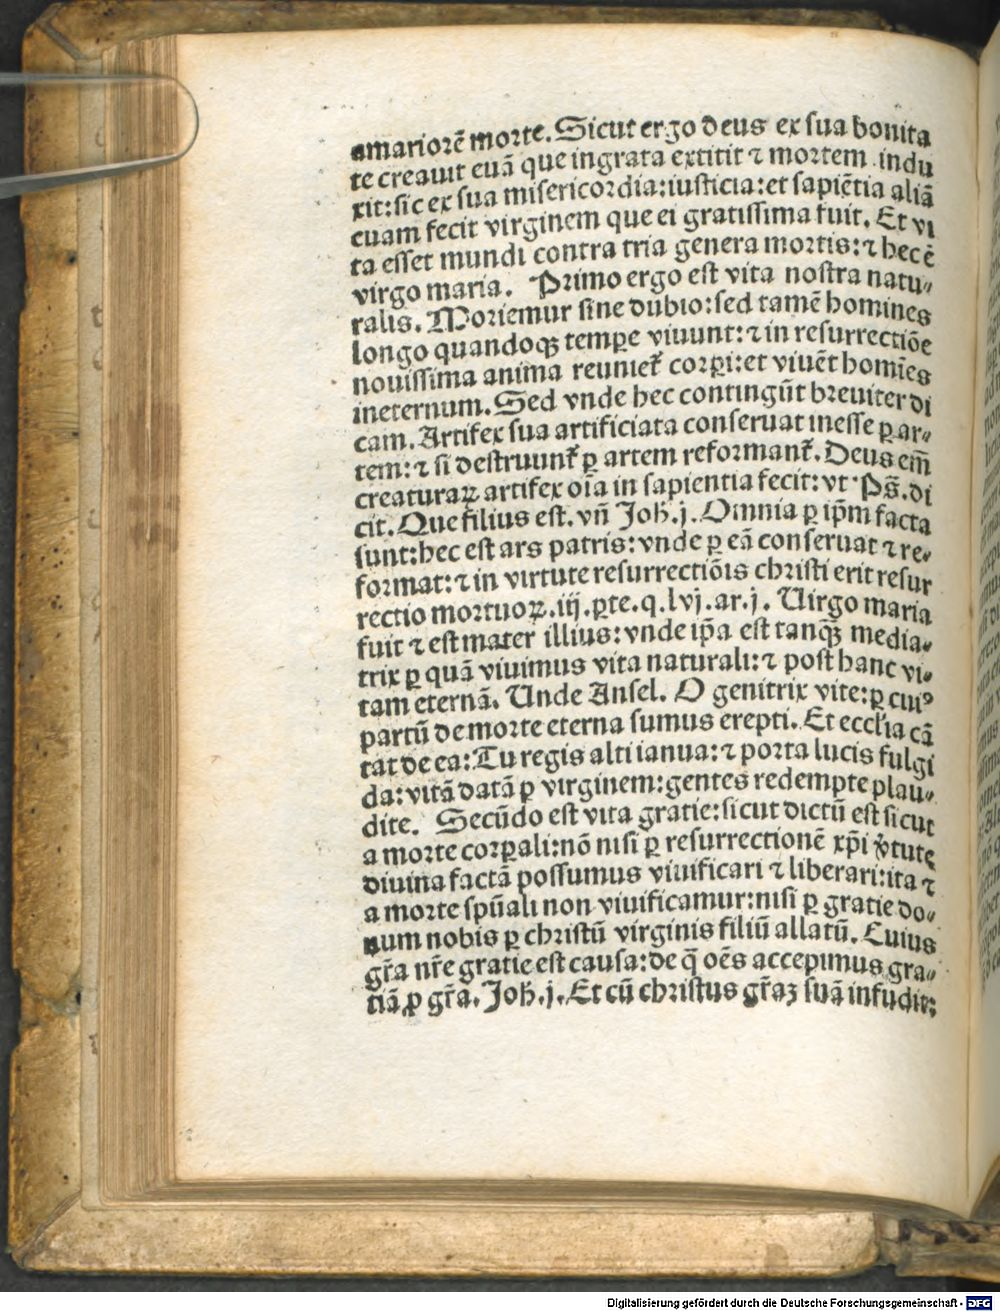 amariorē morte. Sicut ergo deus ex sua bonita
te creauit euā que ingrata extitit ⁊ mortem indu
xit: sic ex sua misericordia: iusticia: et sapiētia aliā
euam fecit virginem que ei gratissima fuit. Et vi
ta esset mundi contra tria genera mortis: ⁊ hec ē
virgo maria. Primo ergo est vita nostra natu⸗
ralis. Moriemur sine dubio: sed tamē homines
longo quandoqꝫ tempe viuunt: ⁊ in resurrectiōe
nouissima anima reuniet᷑ corꝑi: et viuēt homīes
ineternum. Sed vnde hec contingūt breuiter di
cam. Artifex sua artificiata conseruat inesse ꝑ ar⸗
tem: ⁊ si destruunt᷑ ꝑ artem reformant᷑. Deus em̄
creaturaꝝ artifex oīa in sapientia fecit: vt Ps̄. di
cit. Que filius est. vn̄ Joh̄. j. Omnia ꝑ ip̄m facta
sunt: hec est ars patris: vnde ꝑ eā conseruat ⁊ re⸗
format: ⁊ in virtute resurrectiōis christi erit resur
rectio mortuoꝝ. iij. ꝑte. q. lvj. ar. j. Uirgo maria
fuit ⁊ est mater illius: vnde ip̄a est tanqꝫ̄ media⸗
trix ꝑ quā viuimus vita naturali: ⁊ post hanc vi⸗
tam eternā. Unde Ansel. O genitrix vite: ꝑ cuiꝰ
partū de morte eterna sumus erepti. Et eccl̄ia cā
tat de ea: Tu regis alti ianua: ⁊ porta lucis fulgi
da: vitā datā ꝑ virginem: gentes redempte plau⸗
dite. Secūdo est vita gratie: sicut dictū est sicut
a morte corꝑali: nō nisi ꝑ resurrectionē xp̄i v̄tute
diuina factā possumus viuificari ⁊ liberari: ita ⁊
a morte spūali non viuificamur: nisi ꝑ gratie do⸗
num nobis ꝑ christū virginis filiū allatū. Cuius
gr̄a nr̄e gratie est causa: de q̄ oēs accepimus gra⸗
tiā ꝓ gr̄a. Joh̄. j. Et cū christus gr̄aꝫ suā infudit:
Digitalisierung gefördert durch die Deutsche Forschungsgemeinschaft - DFG